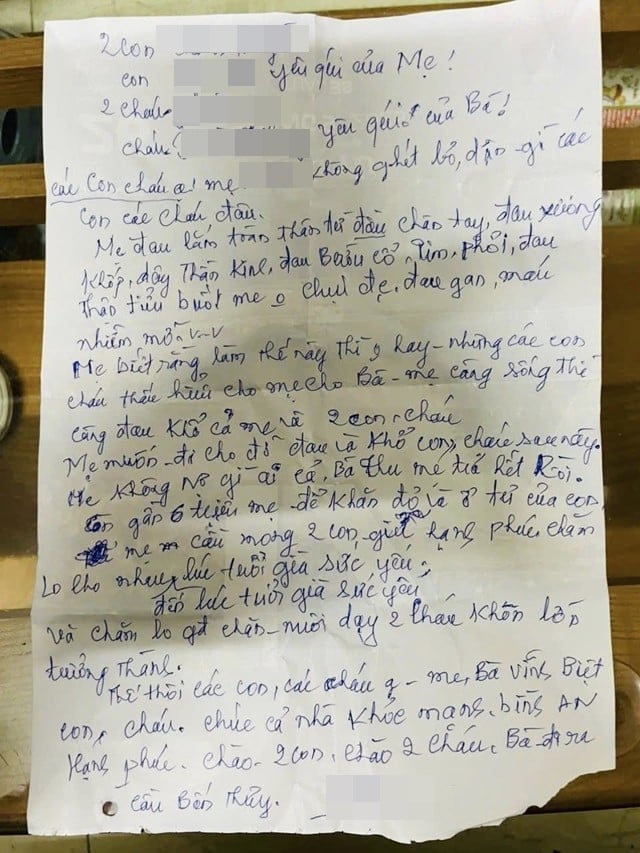 2 con
con yêu quí của Mẹ!
2 cháu
cháu yêu quí của Bà!
không ghét bỏ, dận gì các
các con cháu ơi mẹ
con các cháu đâu.
Mẹ đau lắm toàn thân từ đầu chân tay, đau xương
khớp, dây thần kinh, đau Bướu cổ, tim, phổi, đau
thận tiểu buốt mẹ o chịu đc, đau gan, máu
nhiễm mỡ v-v
Mẹ biết rằng làm thế này thì o hay - nhưng các con
cháu thấu hiểu cho mẹ cho Bà - mẹ càng sống thì
càng đau khổ cả mẹ và 2 con, cháu
Mẹ muốn - đi cho đỡ đau và khổ con, cháu sau này.
Mẹ không nợ gì ai cả, Bà Thu mẹ trả hết Rồi.
Còn gần 6 triệu mẹ - để khăn đỏ và ở tủ của con,
mẹ cầu mong 2 con, giữ hạnh phúc, chăm
lo cho nhau, lúc tuổi già sức yếu,
đến lúc tuổi già sức yếu,
và chăm lo gđ chăn - nuôi dạy 2 cháu khôn lớn
trưởng thành.
Thế thôi các con, các cháu - mẹ, Bà vĩnh Biệt
con, cháu. chúc cả nhà khỏe mạnh, bình AN
Hạnh phúc. chào - 2 con, chào 2 cháu, Bà đi ra
cầu Bến Thủy.